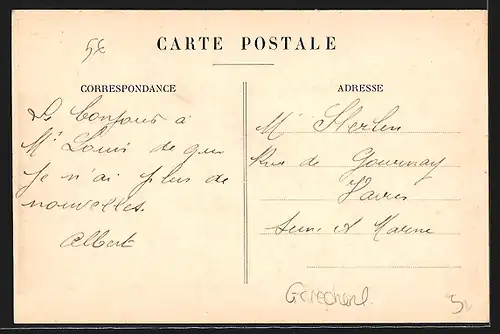 5c
CARTE POSTALE
CORRESPONDANCE
Le bonjour à
Mr Louis de qui
je n'ai plus de
nouvelles.
Albert
ADRESSE
Mr Sterlin
Rue de Gournay
Vaires
Seine et Marne
Griechenl.